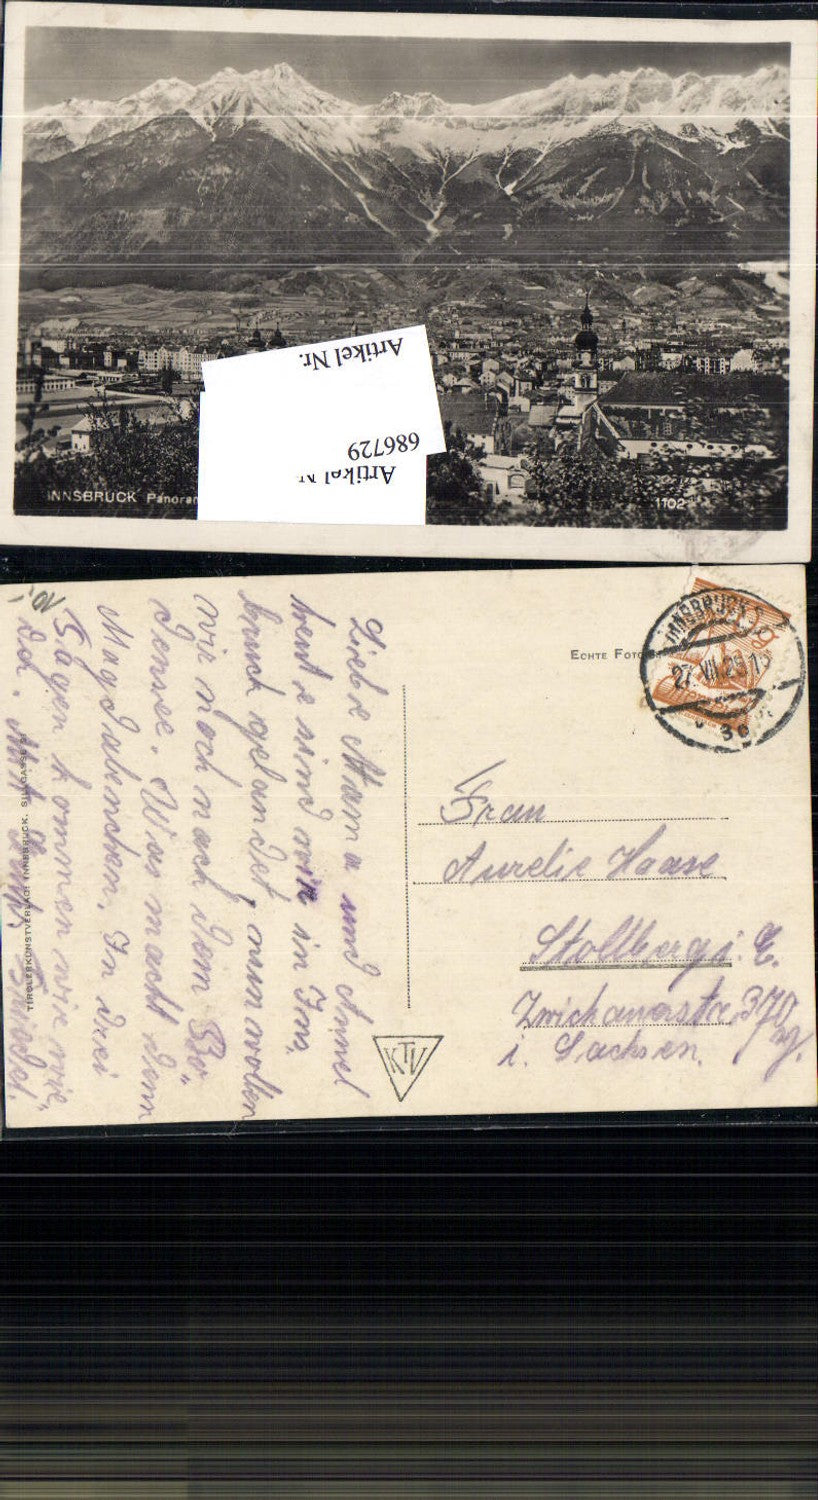 Artikel Nr.
686729
Artikel Nr
INNSBRUCK Panoram
1102
10.-
ECHTE FOTO
INNSBRUCK
27. VII. 29. 1
3 e
Frau
Aurelie Haase
Stollberg i. E.
Zwickauerstr. 370
i. Sachsen.
KTV
TIROLER KUNSTVERLAG INNSBRUCK, SILLGASSE
Liebe Mama und Annel
heute sind wir in Inns
bruck gelandet, nun wollen
wir noch nach dem Bo
densee. Was macht denn
Magdalenchen. In drei
Tagen kommen wir wie
der. Mit Gruß